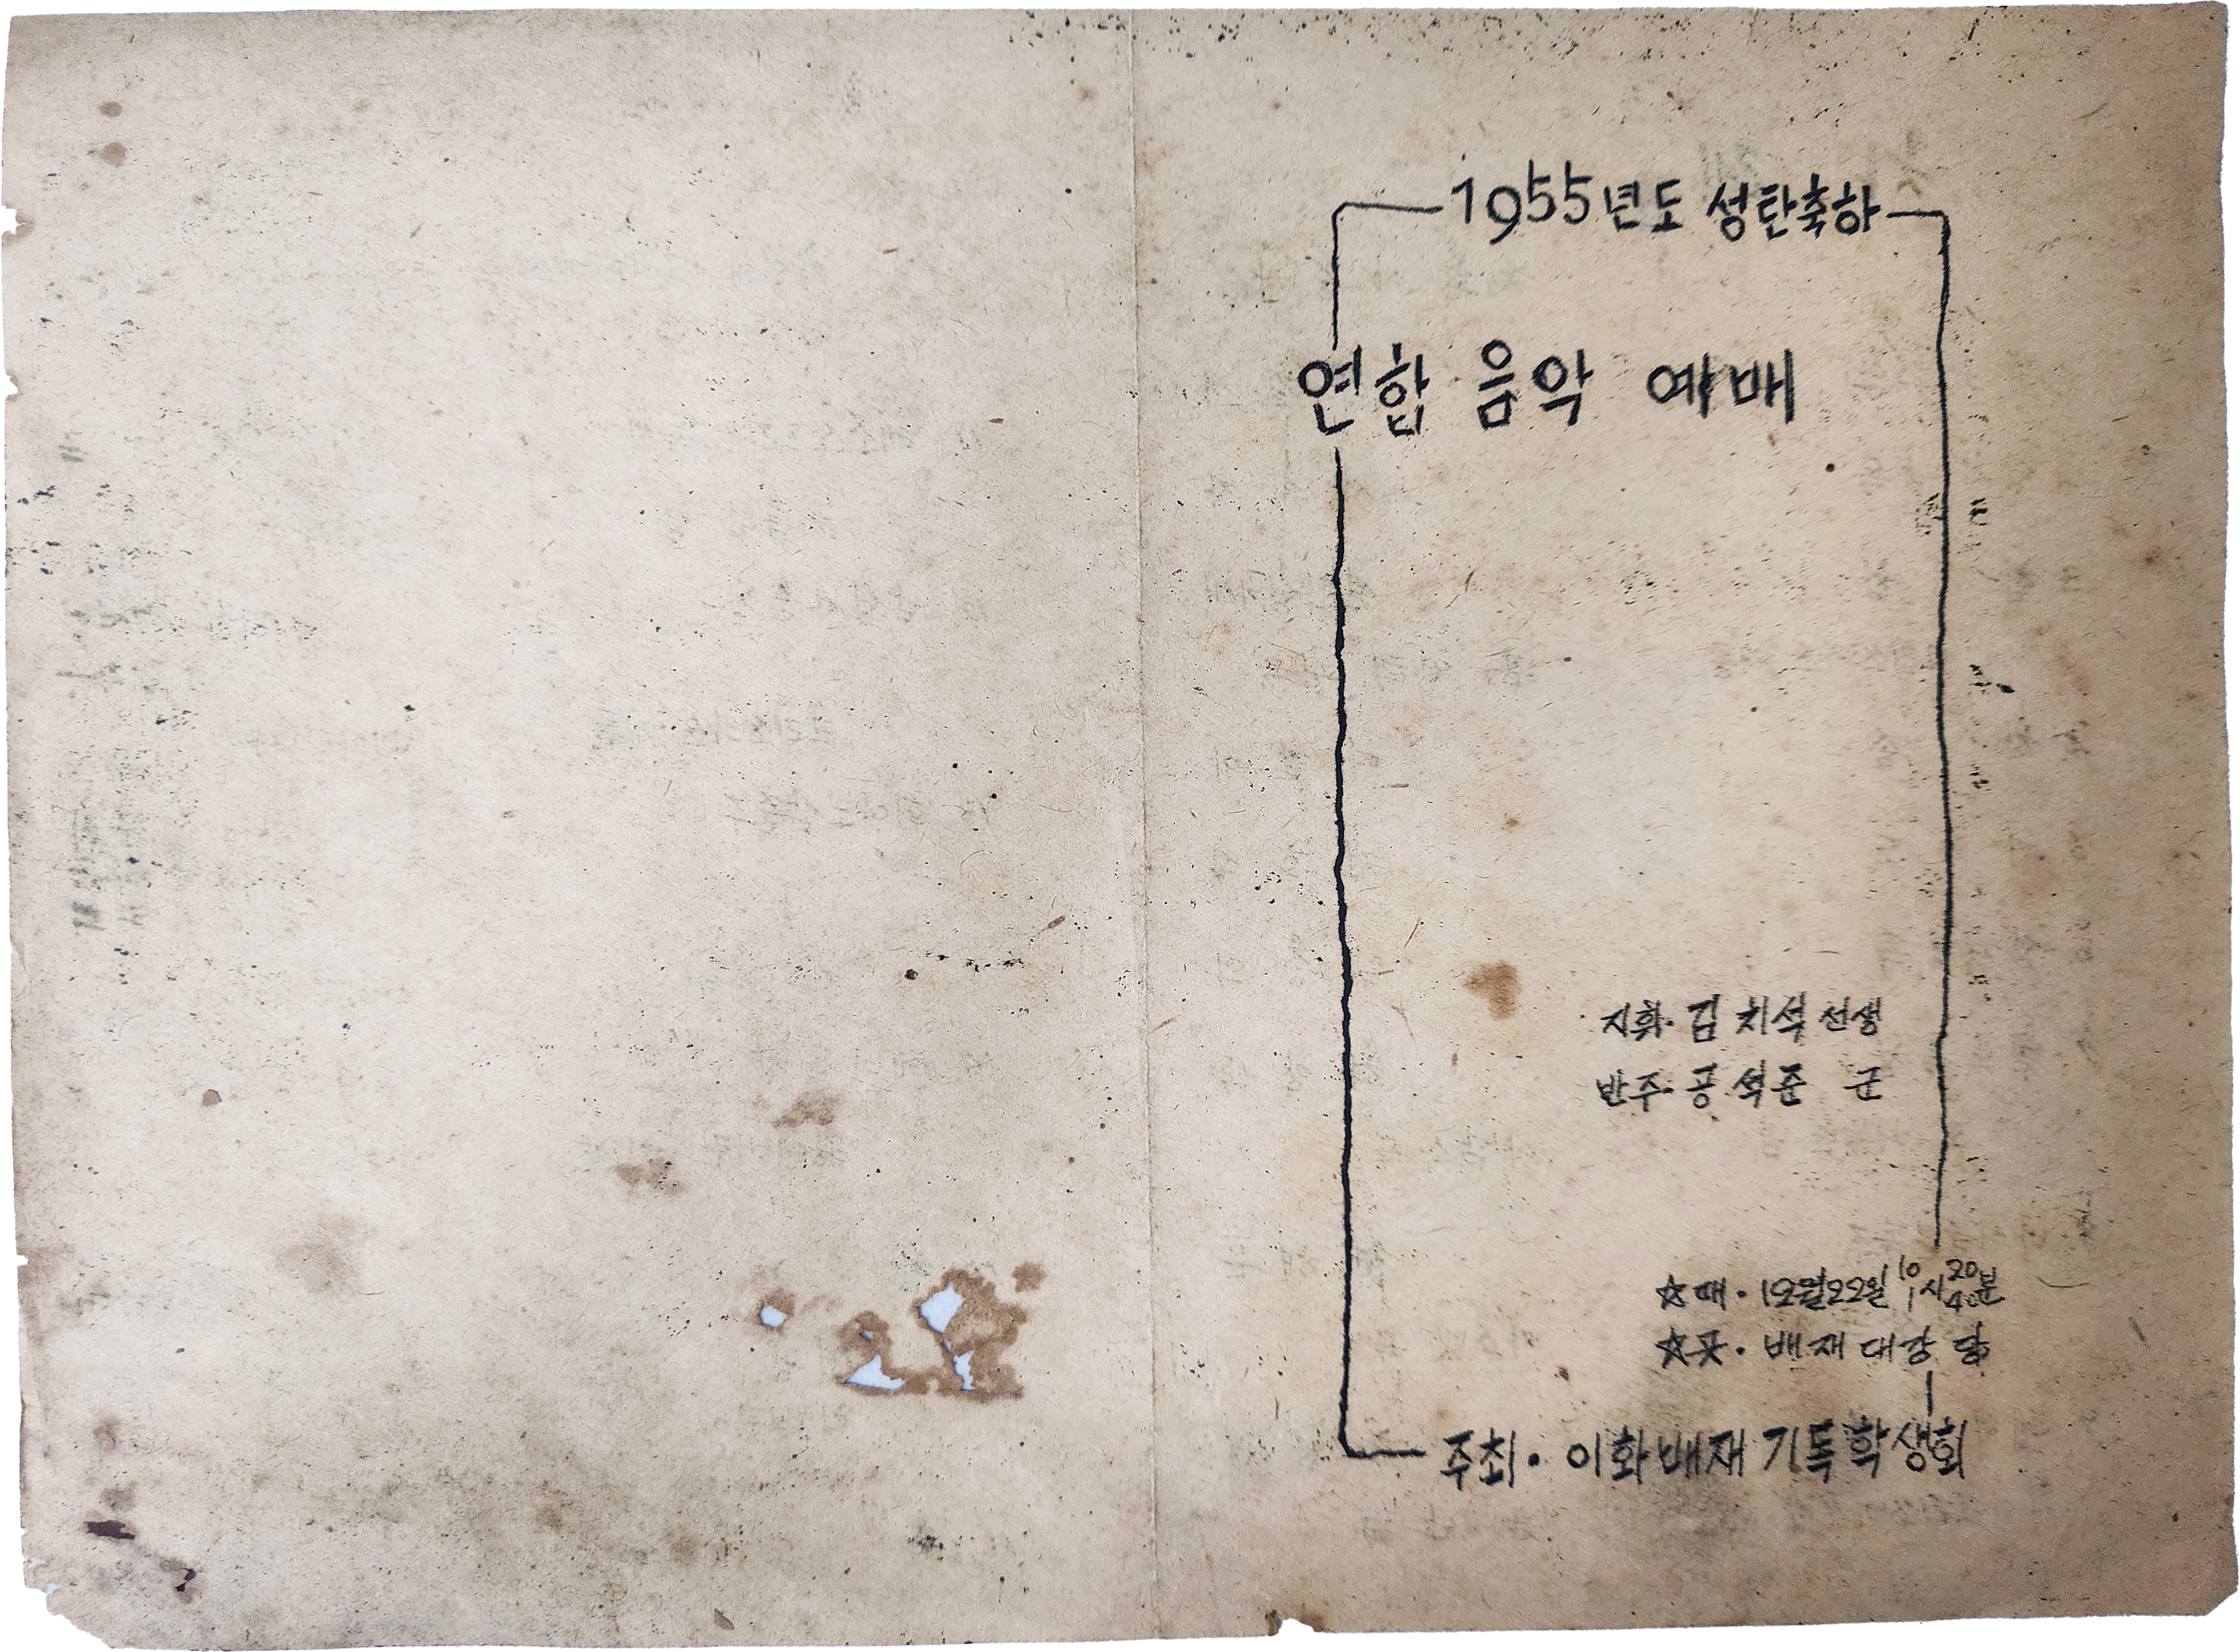 1955년도 성탄축하
연합 음악 예배
지휘· 김치석 선생
반주· 공석준 군
☆때· 12월22일 10시20분 1시40분
☆곳· 배재대강당
주최· 이화배재기독학생회